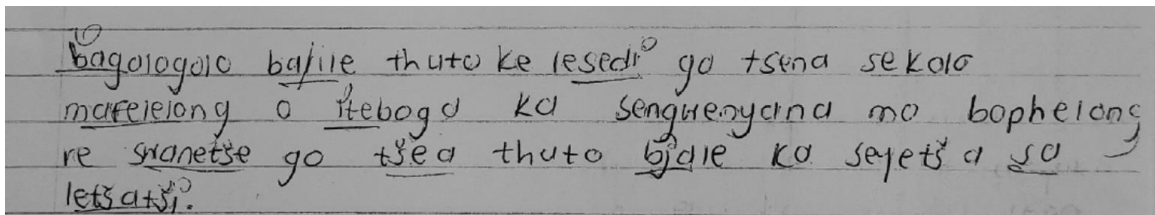 bagologolo bajile thuto ke lesedi go tsena sekolo
mafelelong o iteboga ka sengwenyana mo bophelong
re swanetše go tšea thuto bjale ka seyetša sa
letšatši.